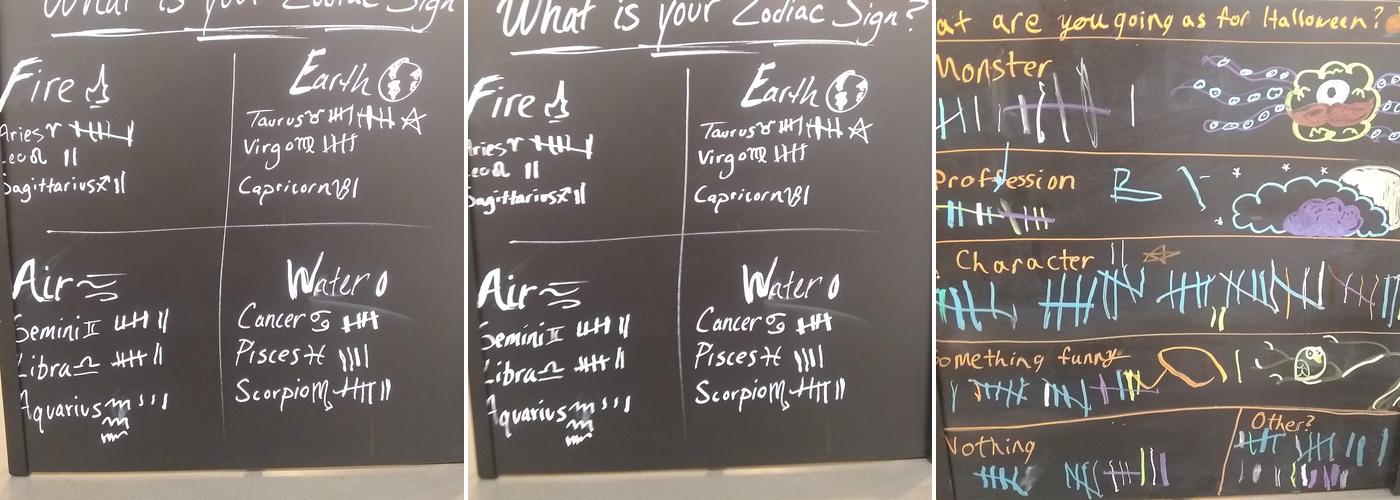 What is your Zodiac Sign
Fire
Earth
Aries
Leo
Sagittarius
Taurus
Virgo
Capricorn
Air
Water
Gemini
Libra
Aquarius
Cancer
Pisces
Scorpio
What is your Zodiac Sign?
Fire
Earth
Aries
Leo
Sagittarius
Taurus
Virgo
Capricorn
Air
Water
Gemini
Libra
Aquarius
Cancer
Pisces
Scorpio
at are you going as for Halloween?
Monster
Proffession
B
Character
omething funny
Nothing
Other?